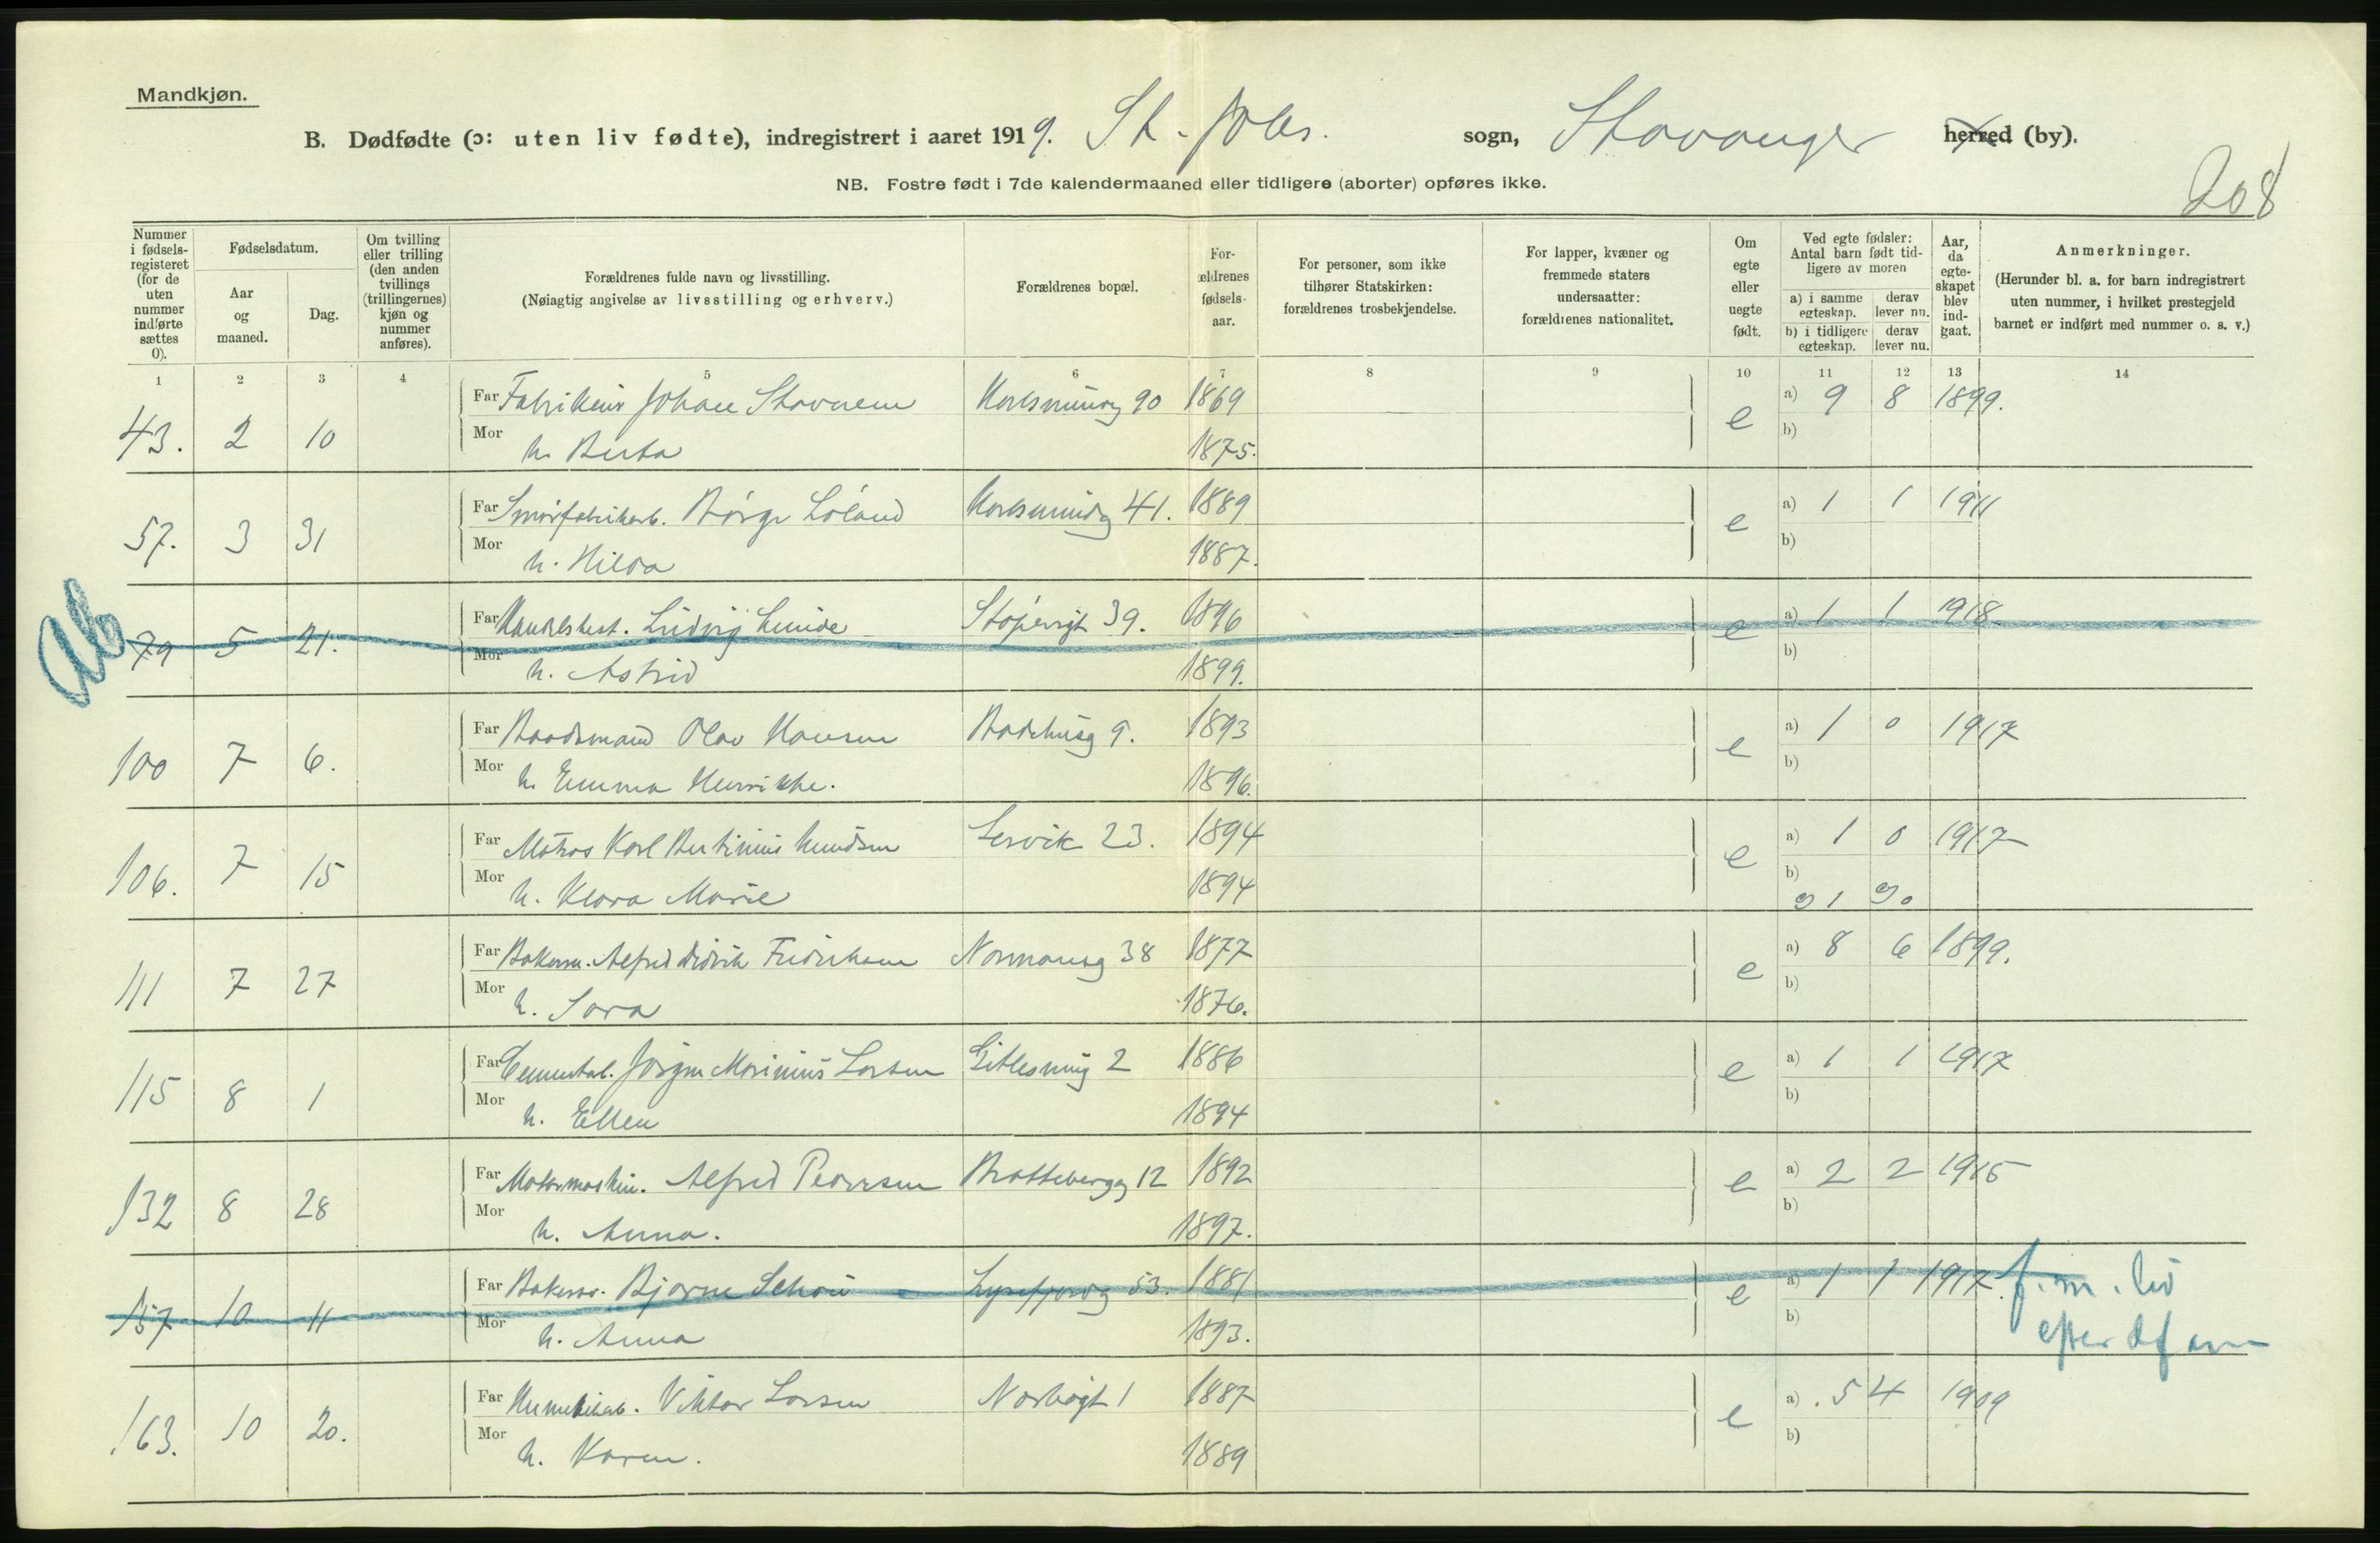 Mandkjøn.
B. Dødfødte (ɔ: uten liv fødte), indregistrert i aaret 1919. St. Johs. sogn, Stavanger herred (by).
NB. Fostre født i 7de kalendermaaned eller tidligere (aborter) opføres ikke.
208
Nummer i fødsels-registeret (for de uten nummer indførte sættes 0).
Fødselsdatum.
Aar og maaned.
Dag.
Om tvilling eller trilling (den anden tvillings (trillingernes) kjøn og nummer anføres).
Forældrenes fulde navn og livsstilling.
(Nøiagtig angivelse av livsstilling og erhverv.)
Forældrenes bopæl.
For-ældrenes fødsels-aar.
For personer, som ikke tilhører Statskirken: forældrenes trosbekjendelse.
For lapper, kvæner og fremmede staters undersaatter: forældrenes nationalitet.
Om egte eller uegte født.
Ved egte fødsler: Antal barn født tid-ligere av moren
a) i samme egteskap. derav lever nu.
b) i tidligere egteskap. derav lever nu.
Aar, da egte-skapet blev ind-gaat.
Anmerkninger.
(Herunder bl. a. for barn indregistrert uten nummer, i hvilket prestegjeld barnet er indført med nummer o. s. v.)
1 2 3 4 5 6 7 8 9 10 11 12 13 14
Far Johan Stavnem 90 1869 a) 9 8 1899.
43. 2 10 Mor h. Berta 1875. e b)
Far Smørfabrikarb. Børge Løland 41. 1889 a) 1 1 1911
57. 3 31 Mor h. Hilda 1887. e b)
Far Handelsbest. Ludvig Lunde 39. 1896 a) 1 1 1918
79 5 21. Mor h. Astrid 1899. e b)
Far Baadsmand Olav Hansen Badehusg 9. 1893 a) 1 0 1917
100 7 6. Mor h. Emma Henrikke. 1896. e b)
Far Matros Karl Bertinius Knudsen Lervik 23. 1894 a) 1 0 1917
106. 7 15 Mor h. Klara Marie 1894 e b)
91 90
Far Alfred Didrik Fredriksen Normansg 38 1877 a) 8 6 1899.
111 7 27 Mor h. Sara 1876. e b)
Far Cementarb. Jørgen Marinius Larsen 2 1886 a) 1 1 1917
115 8 1 Mor h. Ellen 1894 e b)
Far Motormaskin. Alfred Pedersen Brattebergg 12 1892 a) 2 2 1915
132 8 28 Mor h. Anna. 1897. e b)
Far Bjarne Schou Lysefjordg 53. 1881 a) 1 1 1917. f. m. liv
157 10 11 Mor h. Anna 1893. e b) efter df
Far Hermetikarb. Viktor Larsen Norbøgt 1 1887 a) 5 4 1909
163. 10 20. Mor h. Karen. 1889 e b)